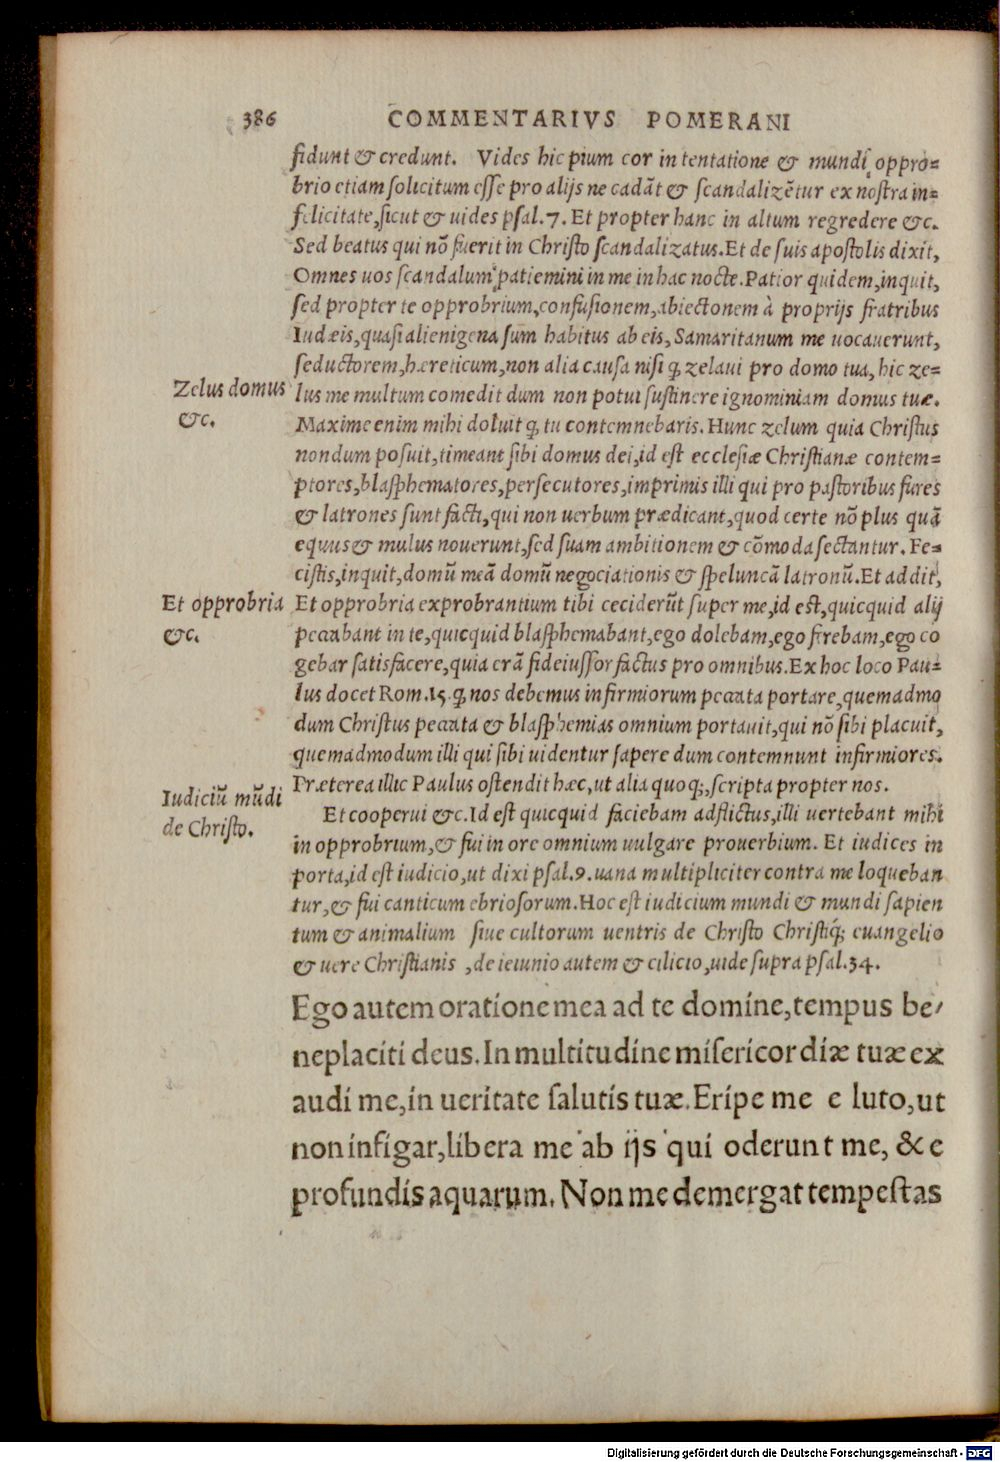 386 COMMENTARIVS POMERANI
fidunt & credunt. Vides hic pium cor in tentatione & mundi oppro=
brio etiam solicitum esse pro alijs ne cadāt & scandalizētur ex nostra in=
felicitate, sicut & uides psal.7. Et propter hanc in altum regredere &c.
Sed beatus qui nō fuerit in Christo scandalizatus. Et de suis apostolis dixit,
Omnes uos scandalum patiemini in me in hac nocte. Patior quidem, inquit,
sed propter te opprobrium, confusionem, abiectonem à proprijs fratribus
Iudæis, quasi alienigena sum habitus ab eis, Samaritanum me uocauerunt,
seductorem, hæreticum, non alia causa nisi q̨ zelaui pro domo tua, hic ze=
Zelus domus
&c.
lus me multum comedit dum non potui sustinere ignominiam domus tuæ.
Maxime enim mihi doluit q̨ tu contemnebaris. Hunc zelum quia Christus
nondum posuit, timeant sibi domus dei, id est ecclesiæ Christianæ contem=
ptores, blasphematores, persecutores, imprimis illi qui pro pastoribus fures
& latrones sunt facti, qui non uerbum prædicant, quod certe nō plus quā
equus & mulus nouerunt, sed suam ambitionem & cōmoda sectantur. Fe=
cistis, inquit, domū meā domū negociationis & speluncā latronū. Et addit,
Et opprobria
&c.
Et opprobria exprobrantium tibi ceciderūt super me, id est, quicquid alij
peccabant in te, quicquid blasphemabant, ego dolebam, ego flebam, ego co
gebar satisfacere, quia erā fideiussor factus pro omnibus. Ex hoc loco Pau=
lus docet Rom. 15. q̨ nos debemus infirmiorum peccata portare, quemadmo
dum Christus peccata & blasphemias omnium portauit, qui nō sibi placuit,
quemadmodum illi qui sibi uidentur sapere dum contemnunt infirmiores.
Præterea illic Paulus ostendit hæc, ut alia quoq;, scripta propter nos.
Iudiciū mūdi
de Christo.
Et cooperui &c. Id est quicquid faciebam adflictus, illi uertebant mihi
in opprobrium, & fui in ore omnium uulgare prouerbium. Et iudices in
porta, id est iudicio, ut dixi psal.9. uana multipliciter contra me loqueban
tur, & fui canticum ebriosorum. Hoc est iudicium mundi & mundi sapien
tum & animalium siue cultorum uentris de Christo Christiq́; euangelio
& uere Christianis , de ieiunio autem & cilicio, uide supra psal.34.
Ego autem oratione mea ad te domine, tempus be/
neplaciti deus. In multitudine misericordiæ tuæ ex
audi me, in ueritate salutis tuæ. Eripe me e luto, ut
non infigar, libera me ab ijs qui oderunt me, & e
profundis aquarum. Non me demergat tempestas
Digitalisierung gefördert durch die Deutsche Forschungsgemeinschaft - DFG